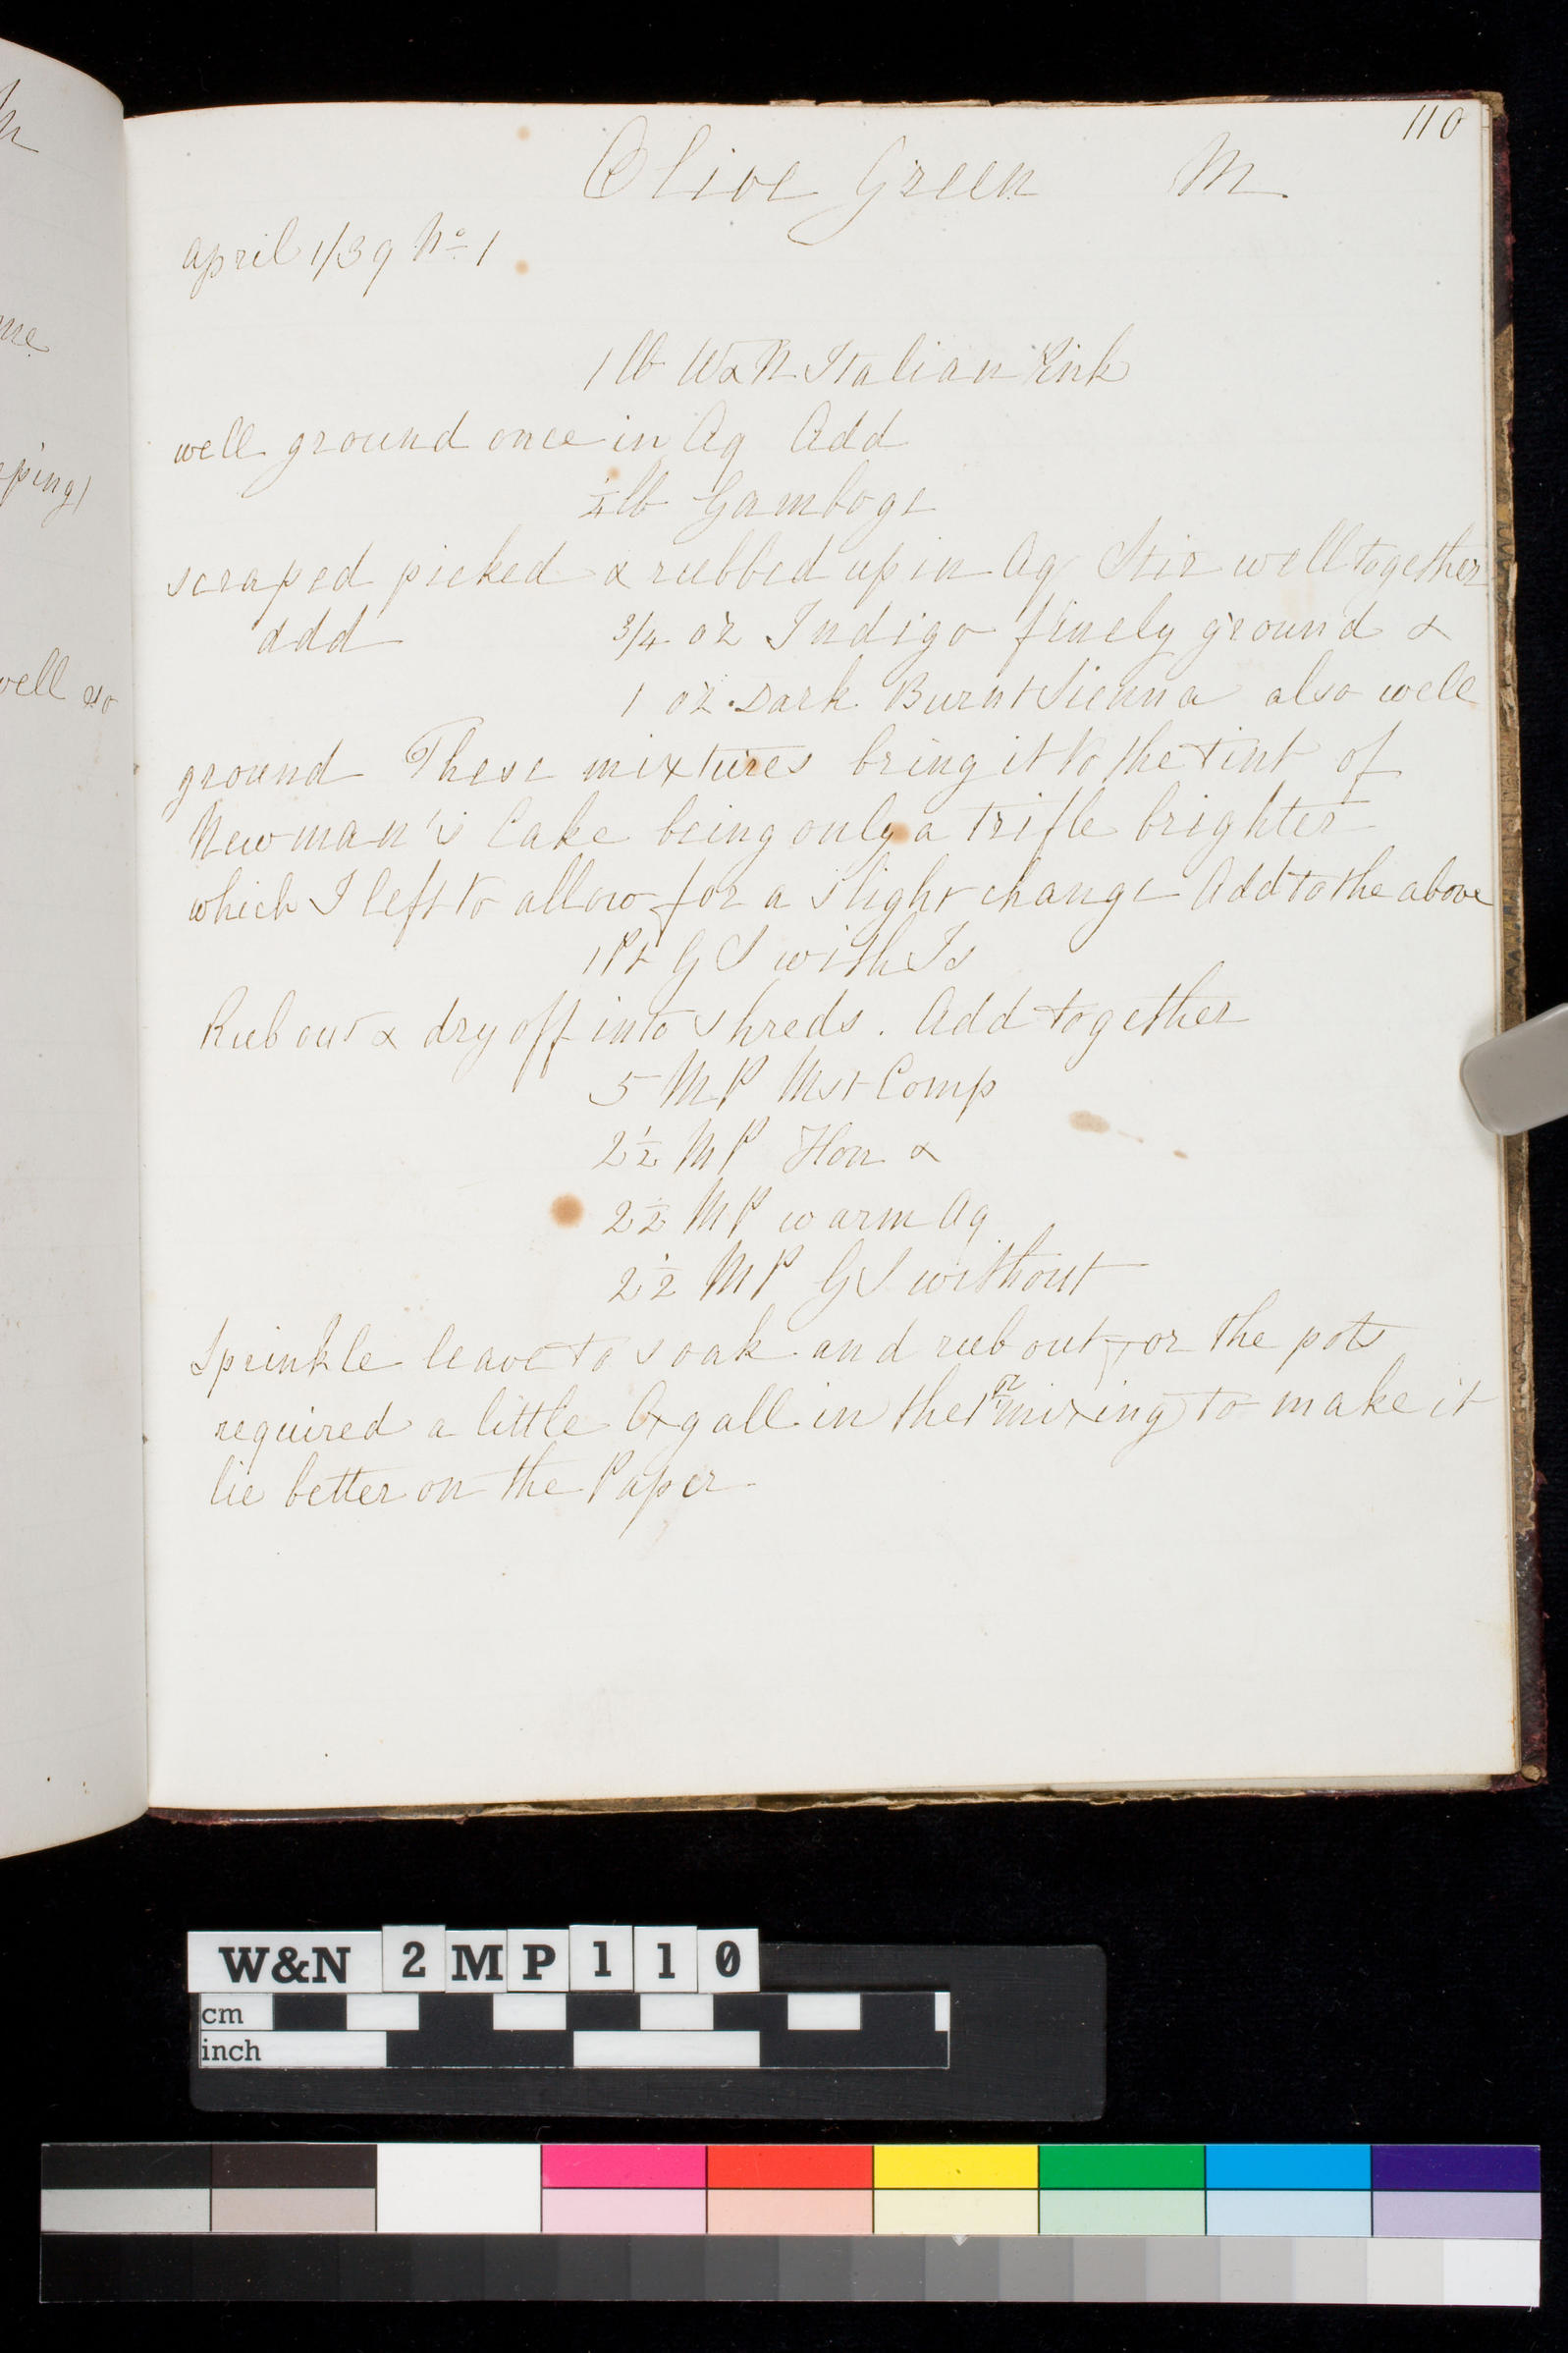 110
Olive Green M
April 1/39 No 1
1 lb W & N Italian Pink
well ground once in Aq Add
1/4 lb Gamboge
scraped picked & rubbed up in Aq Stir well together
add 3/4 oz Indigo finely ground &
1 oz Dark Burnt Sienna also well
ground These mixtures bring it to the tint of
Newman's Cake being only a trifle brighter
which I left to allow for a slight change Add to the above
1 Pt G S with Is
Rub out & dry off into shreds. Add together
5 MP Mst Comp
2 1/2 MP Hon &
2 1/2 MP warm Aq
2 1/2 MP G S without
Sprinkle leave to soak and rub out for the pots
required a little Oxgall in the mixing to make it
lie better on the Paper
ping)
well so
W&N 2MP110
cm
inch